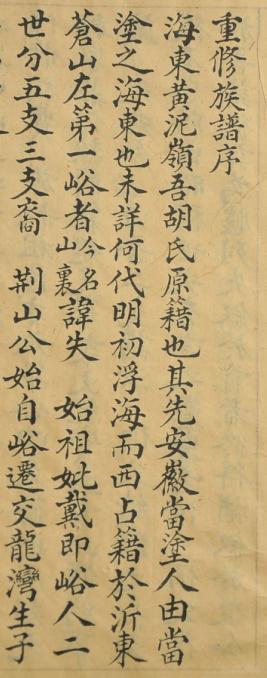 重修族譜序
海東黃泥嶺吾胡氏原籍也其先安徽當塗人由當
塗之海東也未詳何代明初浮海而西占籍於沂東
蒼山左第一峪者今名山裏諱失 始祖妣戴即峪人二
世分五支三支裔 荆山公始自峪遷交龍灣生子